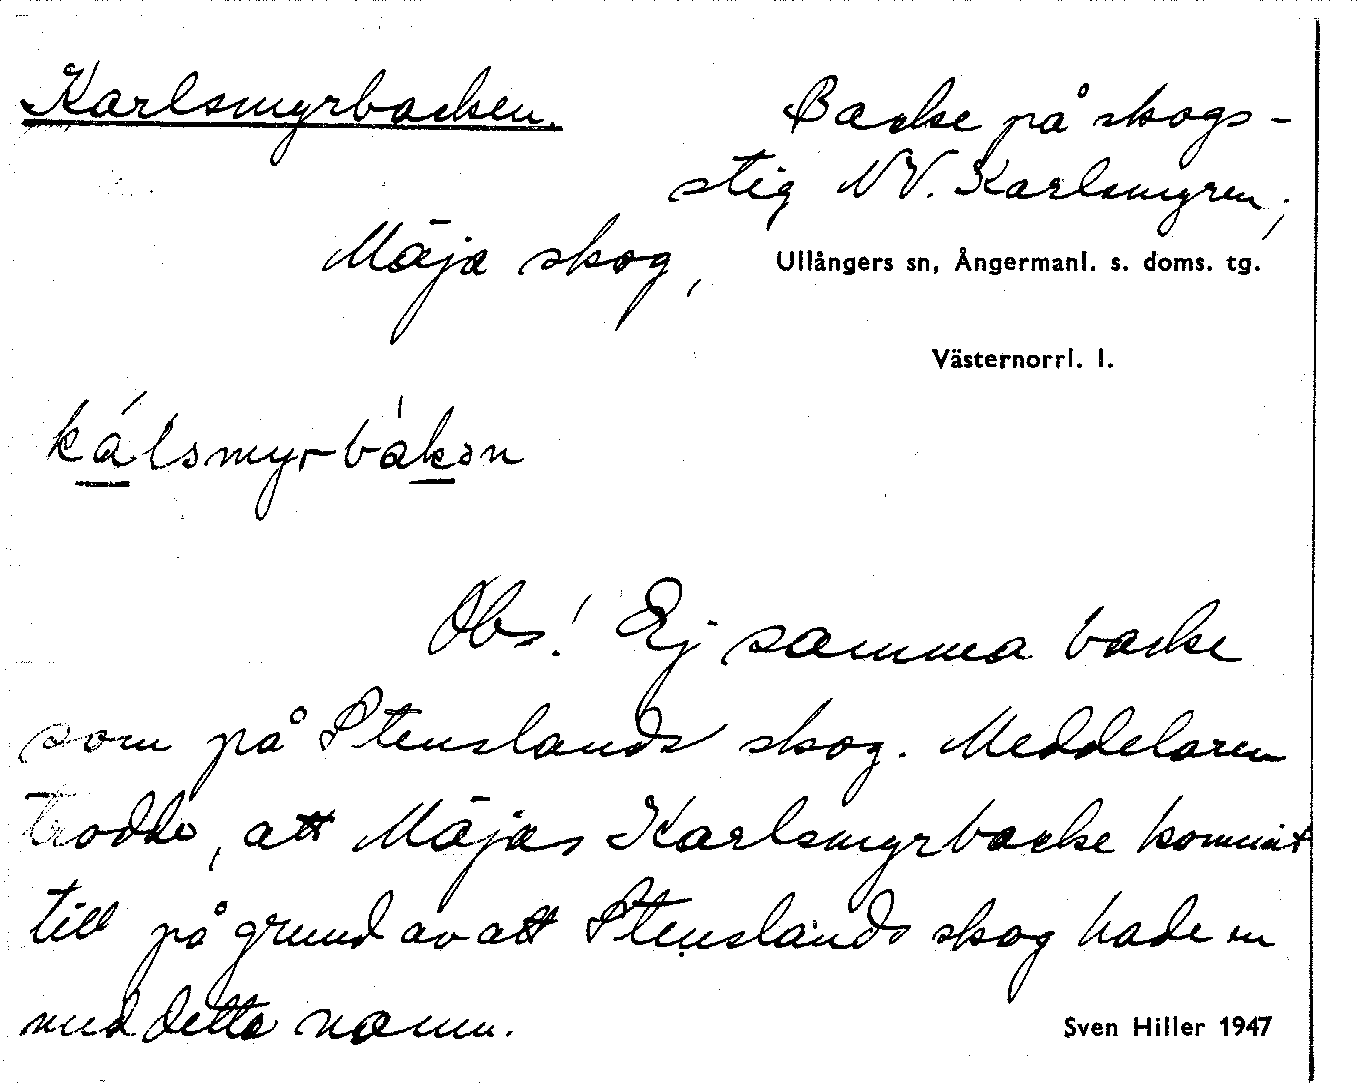 Karlsmyrbacken.
Backe på skogs-
stig NV. Karlsmyren;
Mäja skog,
Ullångers sn, Ångermanl. s. doms. tg.
Västernorrl. l.
kálsmyrbàkən
Obs! Ej samma backe
som på Stenslands skog. Meddelaren
trodde, att Mäjas Karlsmyrbacke kommit
till på grund av att Stenslands skog hade en
med detta namn.
Sven Hiller 1947